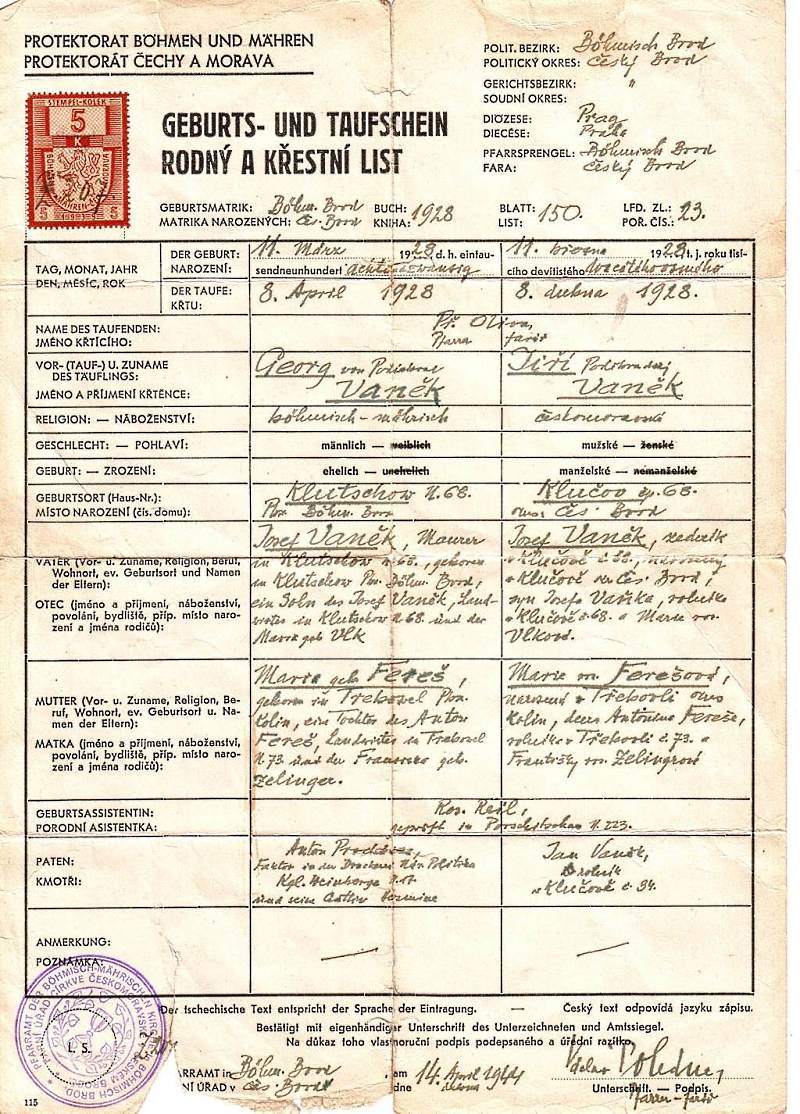 PROTEKTORAT BÖHMEN UND MÄHREN
PROTEKTORÁT ČECHY A MORAVA
POLIT. BEZIRK: Böhmisch Brod
POLITICKÝ OKRES: Český Brod
GERICHTSBEZIRK: "
SOUDNÍ OKRES:
DIÖZESE: Prag
DIECÉSE: Praha
PFARRSPRENGEL: Böhmisch Brod
FARA: Český Brod
STEMPEL-KOLEK
5
K
GEBURTS- UND TAUFSCHEIN
RODNÝ A KŘESTNÍ LIST
GEBURTSMATRIK: Böhm. Brod BUCH: 1928 BLATT: 150. LFD. ZL.: 23.
MATRIKA NAROZENÝCH: Čes. Brod KNIHA: LIST: POŘ. ČÍS.:
TAG, MONAT, JAHR
DEN, MĚSÍC, ROK
DER GEBURT: 11. März 1928 d. h. eintau- 11. března 1928 t. j. roku tisí-
NAROZENÍ: sendneunhundert achtundzwanzig cího devítistého dvacátého osmého
DER TAUFE: 8. April 1928 8. dubna 1928.
KŘTU:
NAME DES TAUFENDEN: Př. Oliva,
JMÉNO KŘTÍCÍHO: Pfarrer farář
VOR- (TAUF-) U. ZUNAME Georg von Podiebrad Jiří Poděbradský
DES TÄUFLINGS: Vaněk Vaněk
JMÉNO A PŘÍJMENÍ KŘTĚNCE:
RELIGION: — NÁBOŽENSTVÍ: böhmisch-mährisch českomoravské
GESCHLECHT: — POHLAVÍ: männlich — weiblich mužské — ženské
GEBURT: — ZROZENÍ: ehelich — unehelich manželské — nemanželské
GEBURTSORT (Haus-Nr.): Klutschow N. 68. Klučov čp. 68.
MÍSTO NAROZENÍ (čís. domu): Böhm. Brod Čes. Brod
VATER (Vor- u. Zuname, Religion, Beruf,
Wohnort, ev. Geburtsort und Namen
der Eltern):
OTEC (jméno a příjmení, náboženství,
povolání, bydliště, příp. místo naro-
zení a jména rodičů):
Josef Vaněk, Maurer
in Klutschow N. 68., geboren
in Klutschow Böhm. Brod,
ein Sohn des Josef Vaněk, Land-
wirtes in Klutschow N. 68 und der
Marie geb. Vlk
Josef Vaněk, zedník
v Klučově č. 68., narozený
v Klučově Čes. Brod,
syn Josefa Vaňka, rolníka
v Klučově č. 68. a Marie roz.
Vlkové.
MUTTER (Vor- u. Zuname, Religion, Be-
ruf, Wohnort, ev. Geburtsort u. Na-
men der Eltern):
MATKA (jméno a příjmení, náboženství,
povolání, bydliště, příp. místo naro-
zení a jména rodičů):
Marie geb. Fereš,
geboren in
Kolin, eine Tochter des Anton
Fereš, Landwirtes in
N. 73 und der geb.
Zelinger.
Marie roz. Ferešová,
narozená v Třebovli
Kolín, dcera Antonína Fereše,
rolníka v Třebovli č. 73. a
Františky roz. Zelingrové
GEBURTSASSISTENTIN: Ros. Reil,
PORODNÍ ASISTENTKA: geprüft in Porschitschan N. 223.
PATEN:
KMOTŘI:
Anton
Faktor in der Druckerei Nár. Politika
Kgl. Weinberge
und seine Gattin
Jan Vaněk,
rolník
v Klučově č. 34.
ANMERKUNG: —
POZNÁMKA: —
Der tschechische Text entspricht der Sprache der Eintragung. — Český text odpovídá jazyku zápisu.
Bestätigt mit eigenhändiger Unterschrift des Unterzeichneten und Amtssiegel.
Na důkaz toho vlastnoruční podpis podepsaného a úřední razítko.
PFARRAMT DER BÖHMISCH-MÄHRISCHEN KIRCHE BÖHMISCH BROD
L. S.
ARRAMT in Böhm. Brod am 14. April 1944
NÍ ÚŘAD v Čes. Brodě dne dubna
Unterschrift. — Podpis.
Pfarrer-farář
115